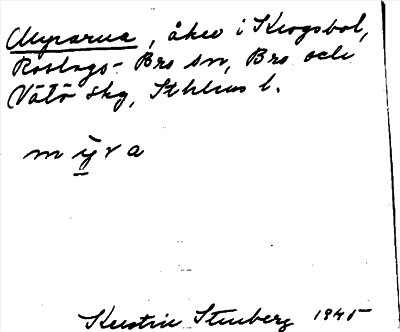 Myrarna, åker i Krogsbol,
Roslags-Bro sn, Bro och
Vätö skg, Sthlms l.
m ȳ r a
Kerstin Stenberg 1945